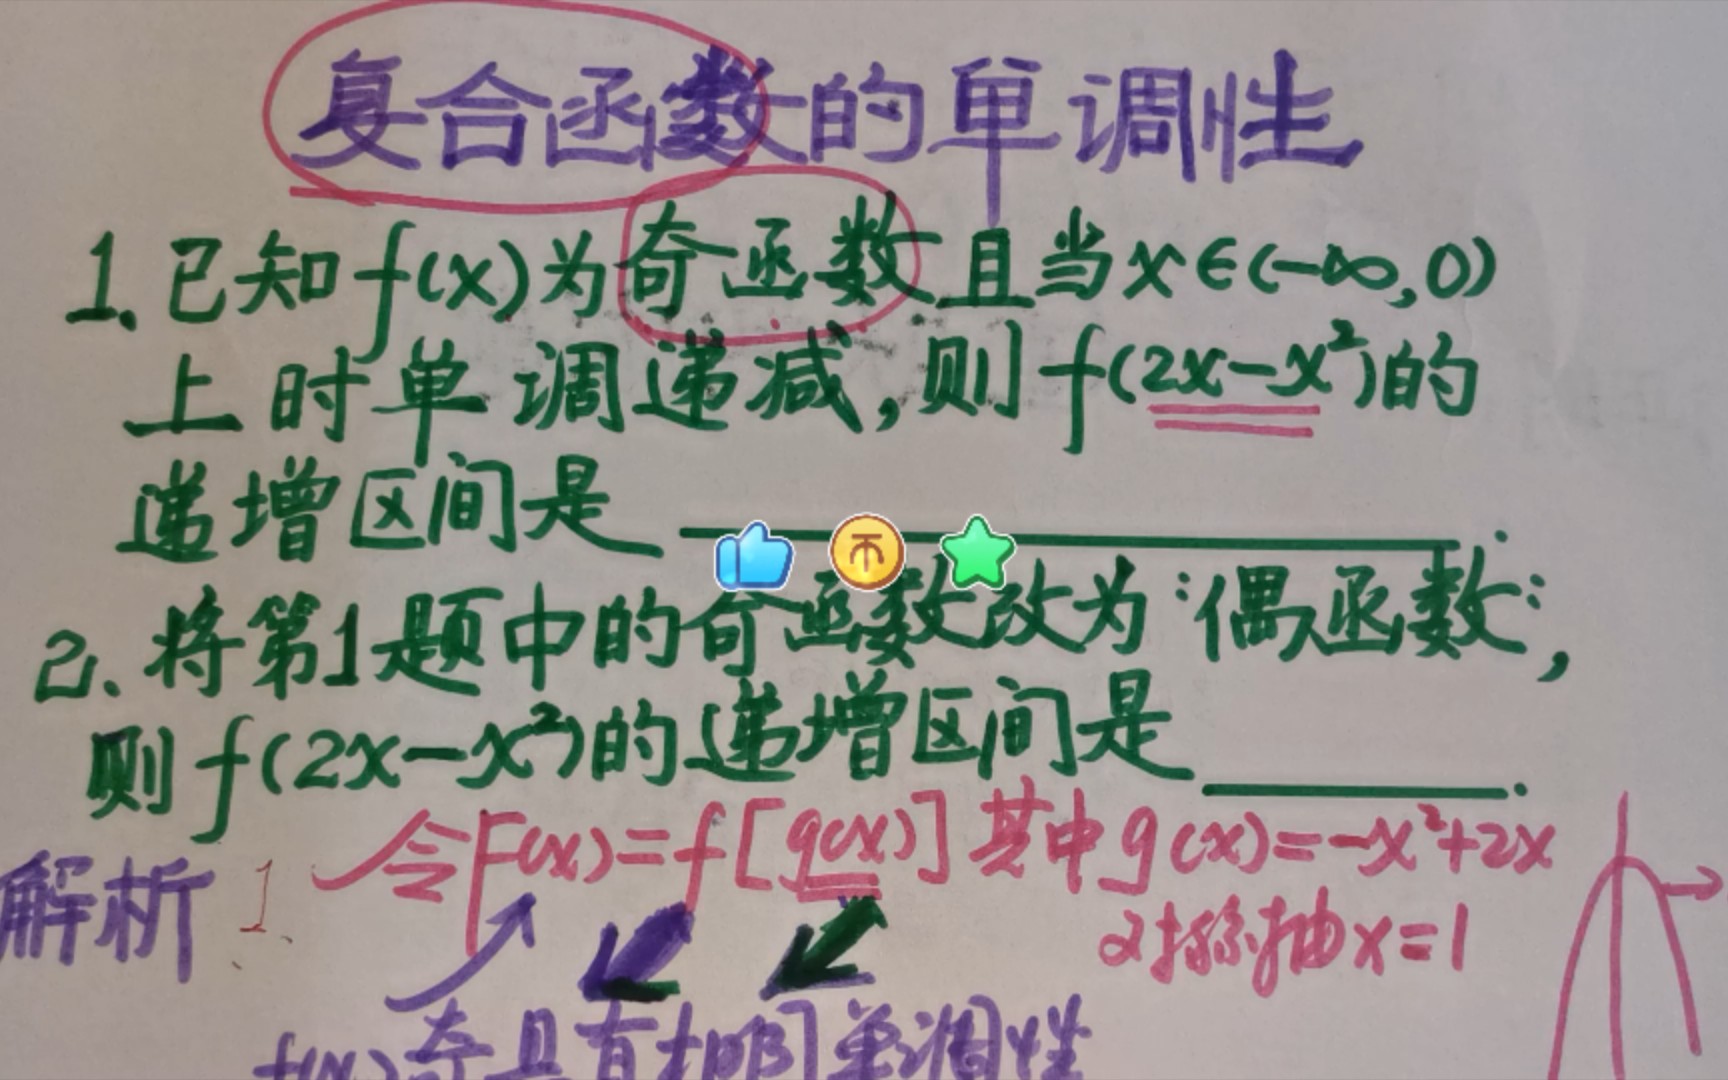 复合函数的单调性
1.已知f(x)为奇函数且当x∈(-∞,0)
上时单调递减,则f(2x-x²)的
递增区间是________.
2.将第1题中的奇函数改为"偶函数",
则f(2x-x²)的递增区间是____.
解析 1、令F(x)=f[g(x)]其中g(x)=-x²+2x
对称抽x=1
f(x)奇具有相同单调性